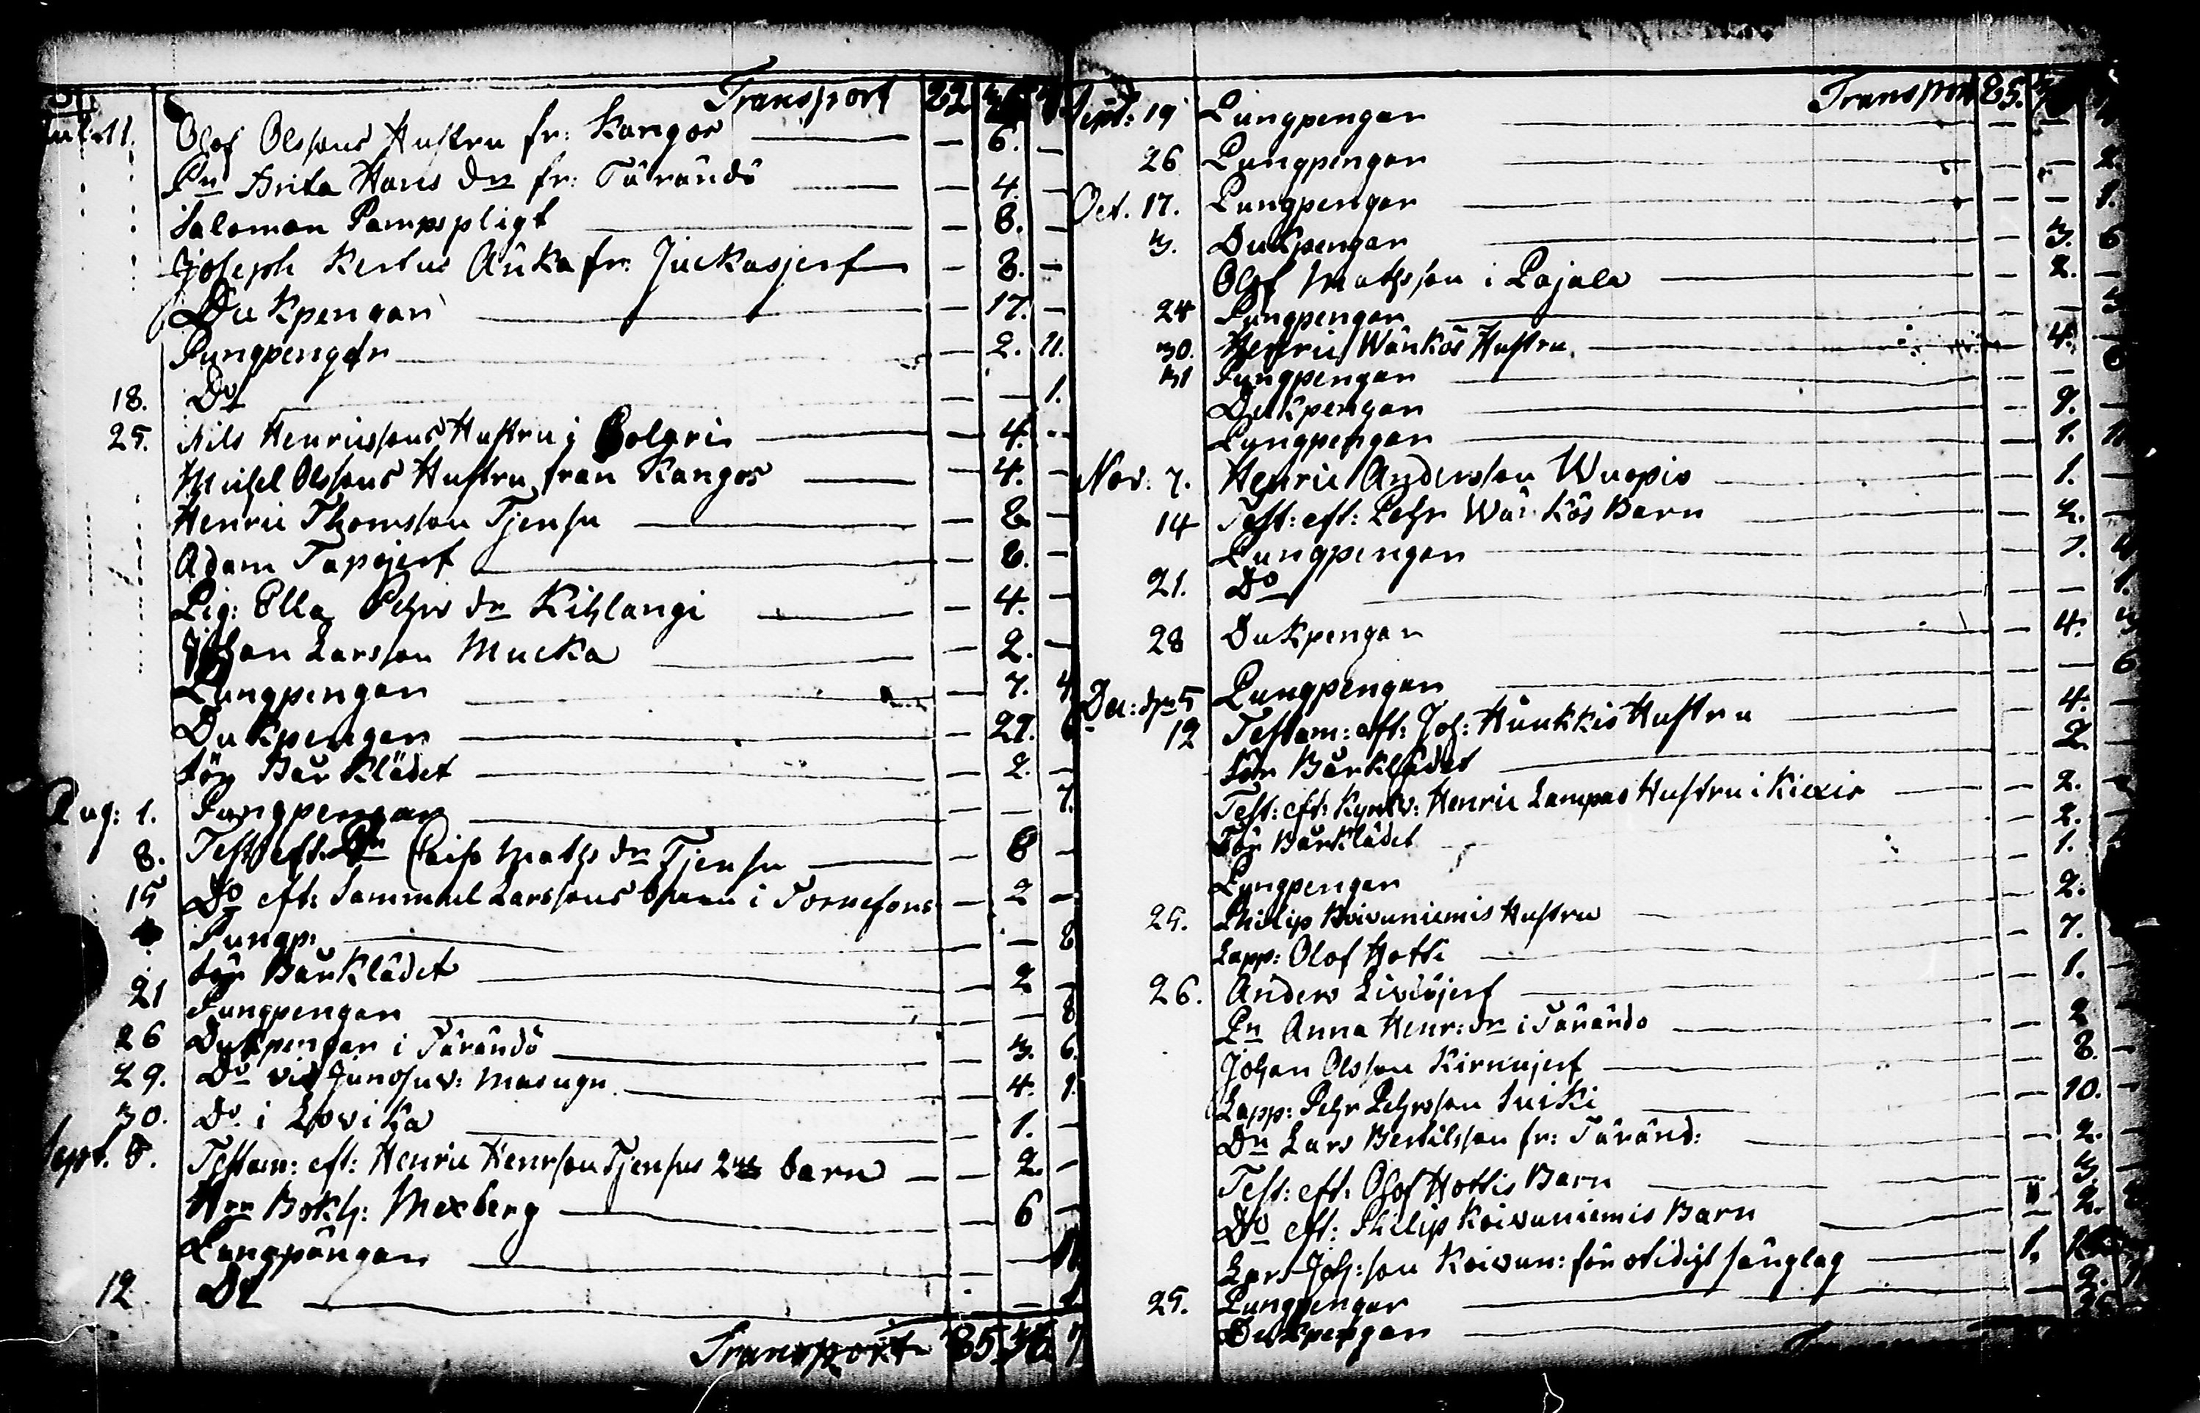 Transport 22
Jul. 11. Olof Olssons Hustru fr: Kangos — 6. —
Pn Brita Hans dr fr: Tärändö — 4. —
Salomon Pampspligt — 8. —
Joseph Kertus Auka fr: Juckasjerf — 8. —
Dukpengar — 17. —
Pungpengar — 2. 11.
18. Do — — 1.
25. Nils Henricssons Hustru i — 4. —
Michel Olssons Hustru från Kangos — 4. —
Henric Thomsson Tjensu — 8 —
Adam Tapojerf — 8. —
Pig: Ella Pehrs dr Kihlangi — 4. —
Johan Larsson Mucka — 2. —
Pungpengar — 7. 4
Dukpengar — 29.
för Bår Klädet — 2. —
Aug: 1. Pungpengar — — 7.
8. Test: eft: Pn Caisa Mats dr Tjensu — 8 —
15 Do eft: Sammuel Larssons barn i Tornefors — 2 —
Pungp: — — 8
för Bår Klädet — 2 —
21 Pungpengar — — 8
26 Dukpengar i Tärändö — 3. 6.
29. Do vid Junosuv: Masugn — 4. 1.
30. Do i Lovika — 1. —
Sept. 5. Testam: eft: Henric Henrson Tjensus 2ne barn — 2. —
Hrr Bokh: Mexberg — 6 —
Pungpängar — — 11
12. Do — —
Transport 85. 7
Transport 85.
Sept: 19 Pungpengar — —
26 Pungpengar — — 2
Oct. 17. Pungpengar — — 1.
3. Dukpengar — 3. 6
Olof Mathsson i Pajala — 2. —
24 Pungpengar — —
30. Henric Wänkös Hustru — 4.
31 Pungpengar — —
Dukpengar — 9. —
Pungpengar — 1.
Nov: 7. Henric Andersson Wuopio — 1. —
14 Test: eft: Pehr Wänkös Barn — 2. —
Pungpengar — 7. 4
21. Do — — 1.
28 Dukpengar — 4.
Dec: 5 Pungpengar — — 6
12 Testam: eft: Joh: Hunkkis Hustru — 4. —
för Bårklädet — 2.
Test: eft: Henric Lampas Hustru i Kiexis — 2. —
För Bårklädet — 2. —
Pungpengar — 1.
25. Philip Koivuniemis Hustru — 2.
Lapp: Olof Hotti — 7. —
26. Anders Liviöjerf — 1. —
Pn Anna Henr: dr i Tärändö — 2
Johan Olsson Kirnujerf — 8. —
Lapp: Pehr Pehrsson Suiki — 10. —
Dn Lars Bertilsson fr: Täränd: — 2. —
Test: eft: Olof Hottis Barn — 3.
Do eft: Philip Koivuniemis Barn — 2.
Lars Joh:son Koivun: för otidigt sänglag 1.
25. Pungpengar — 2.
Dukpengar —